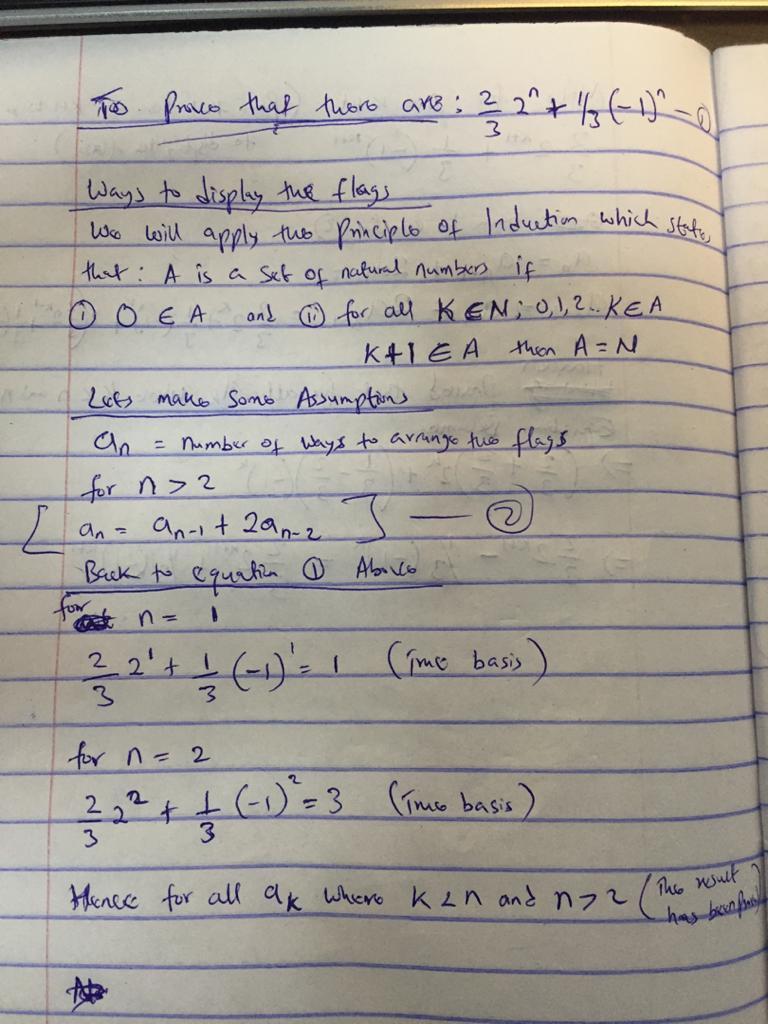 To Prove that there are: 2/3 2^n + 1/3 (-1)^n — ①
Ways to display the flags
We will apply the Principle of Induction which states
that: A is a set of natural numbers if
① 0 ∈ A and ⑪ for all K ∈ N; 0,1,2..K ∈ A
K+1 ∈ A then A = N
Lets make some Assumptions
an = number of ways to arrange the flags
for n > 2
[ an = an-1 + 2an-2 ] — ②
Back to equation ① Above
for n = 1
2/3 2^1 + 1/3 (-1)^1 = 1 (True basis)
for n = 2
2/3 2^2 + 1/3 (-1)^2 = 3 (True basis)
Hence for all ak where K < n and n > 2 (The result
has been